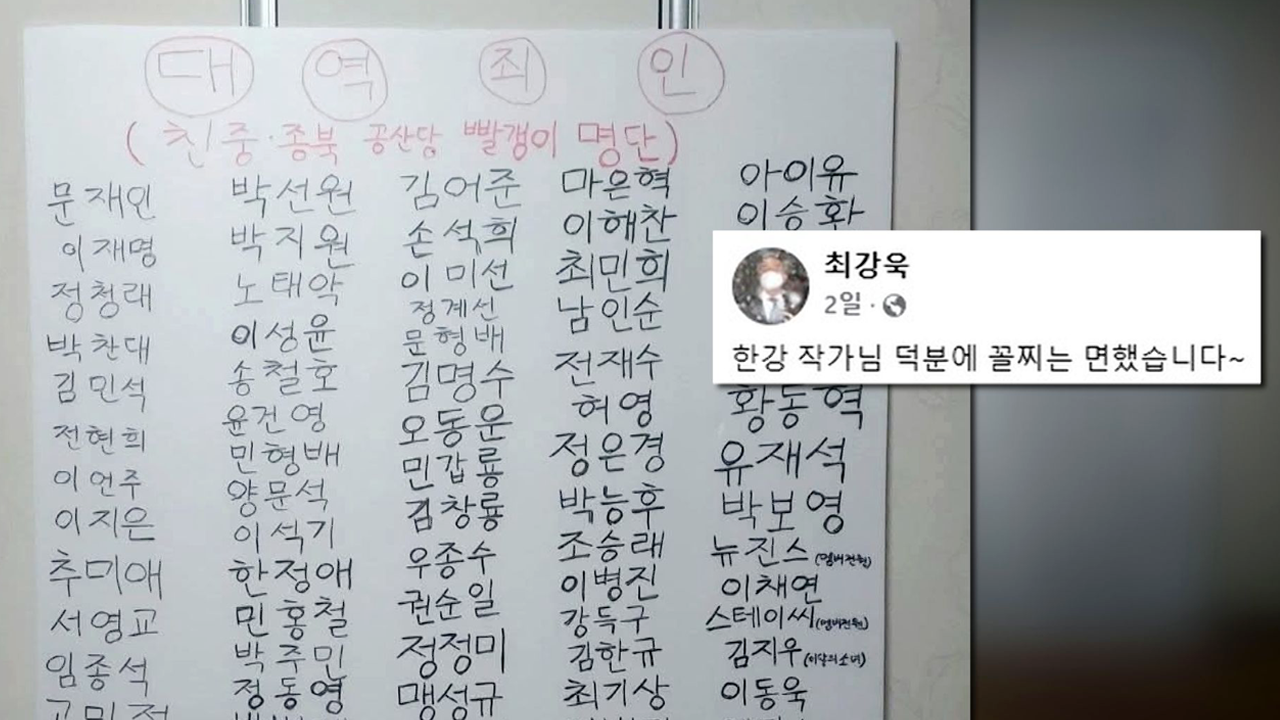 대 역 죄 인
( 친중·종북 공산당 빨갱이 명단 )
문재인
이재명
정청래
박찬대
김민석
전현희
이언주
이지은
추미애
서영교
임종석
고민정
박선원
박지원
노태악
이성윤
송철호
윤건영
민형배
양문석
이석기
한정애
민홍철
박주민
정동영
김어준
손석희
이미선
정계선
문형배
김명수
오동운
민갑룡
김창룡
우종수
권순일
정정미
맹성규
마은혁
이해찬
최민희
남인순
전재수
허영
정은경
박능후
조승래
이병진
강득구
김한규
최기상
아이유
이승환
황동혁
유재석
박보영
뉴진스(멤버전원)
이채연
스테이씨(멤버전원)
김지우(이달의소녀)
이동욱
최강욱
2일 ·
한강 작가님 덕분에 꼴찌는 면했습니다~